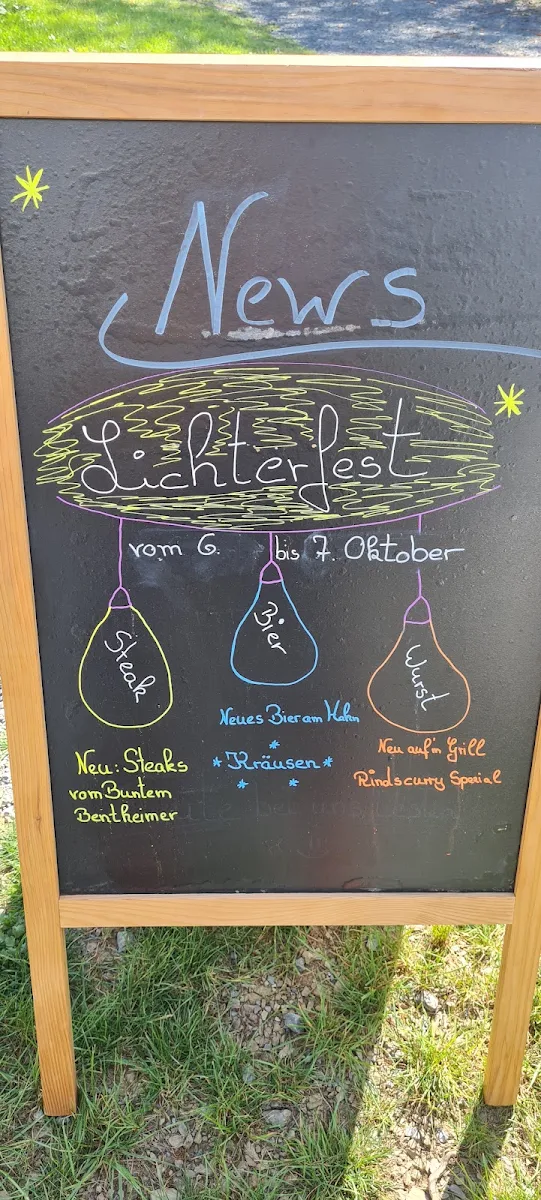 News
Lichterfest
vom 6. bis 7. Oktober
Steak
Bier
Wurst
Neu: Steaks
vom Buntem
Bentheimer
Neues Bier am Hahn
Kräusen
Neu auf'n Grill
Rindscurry Spezial